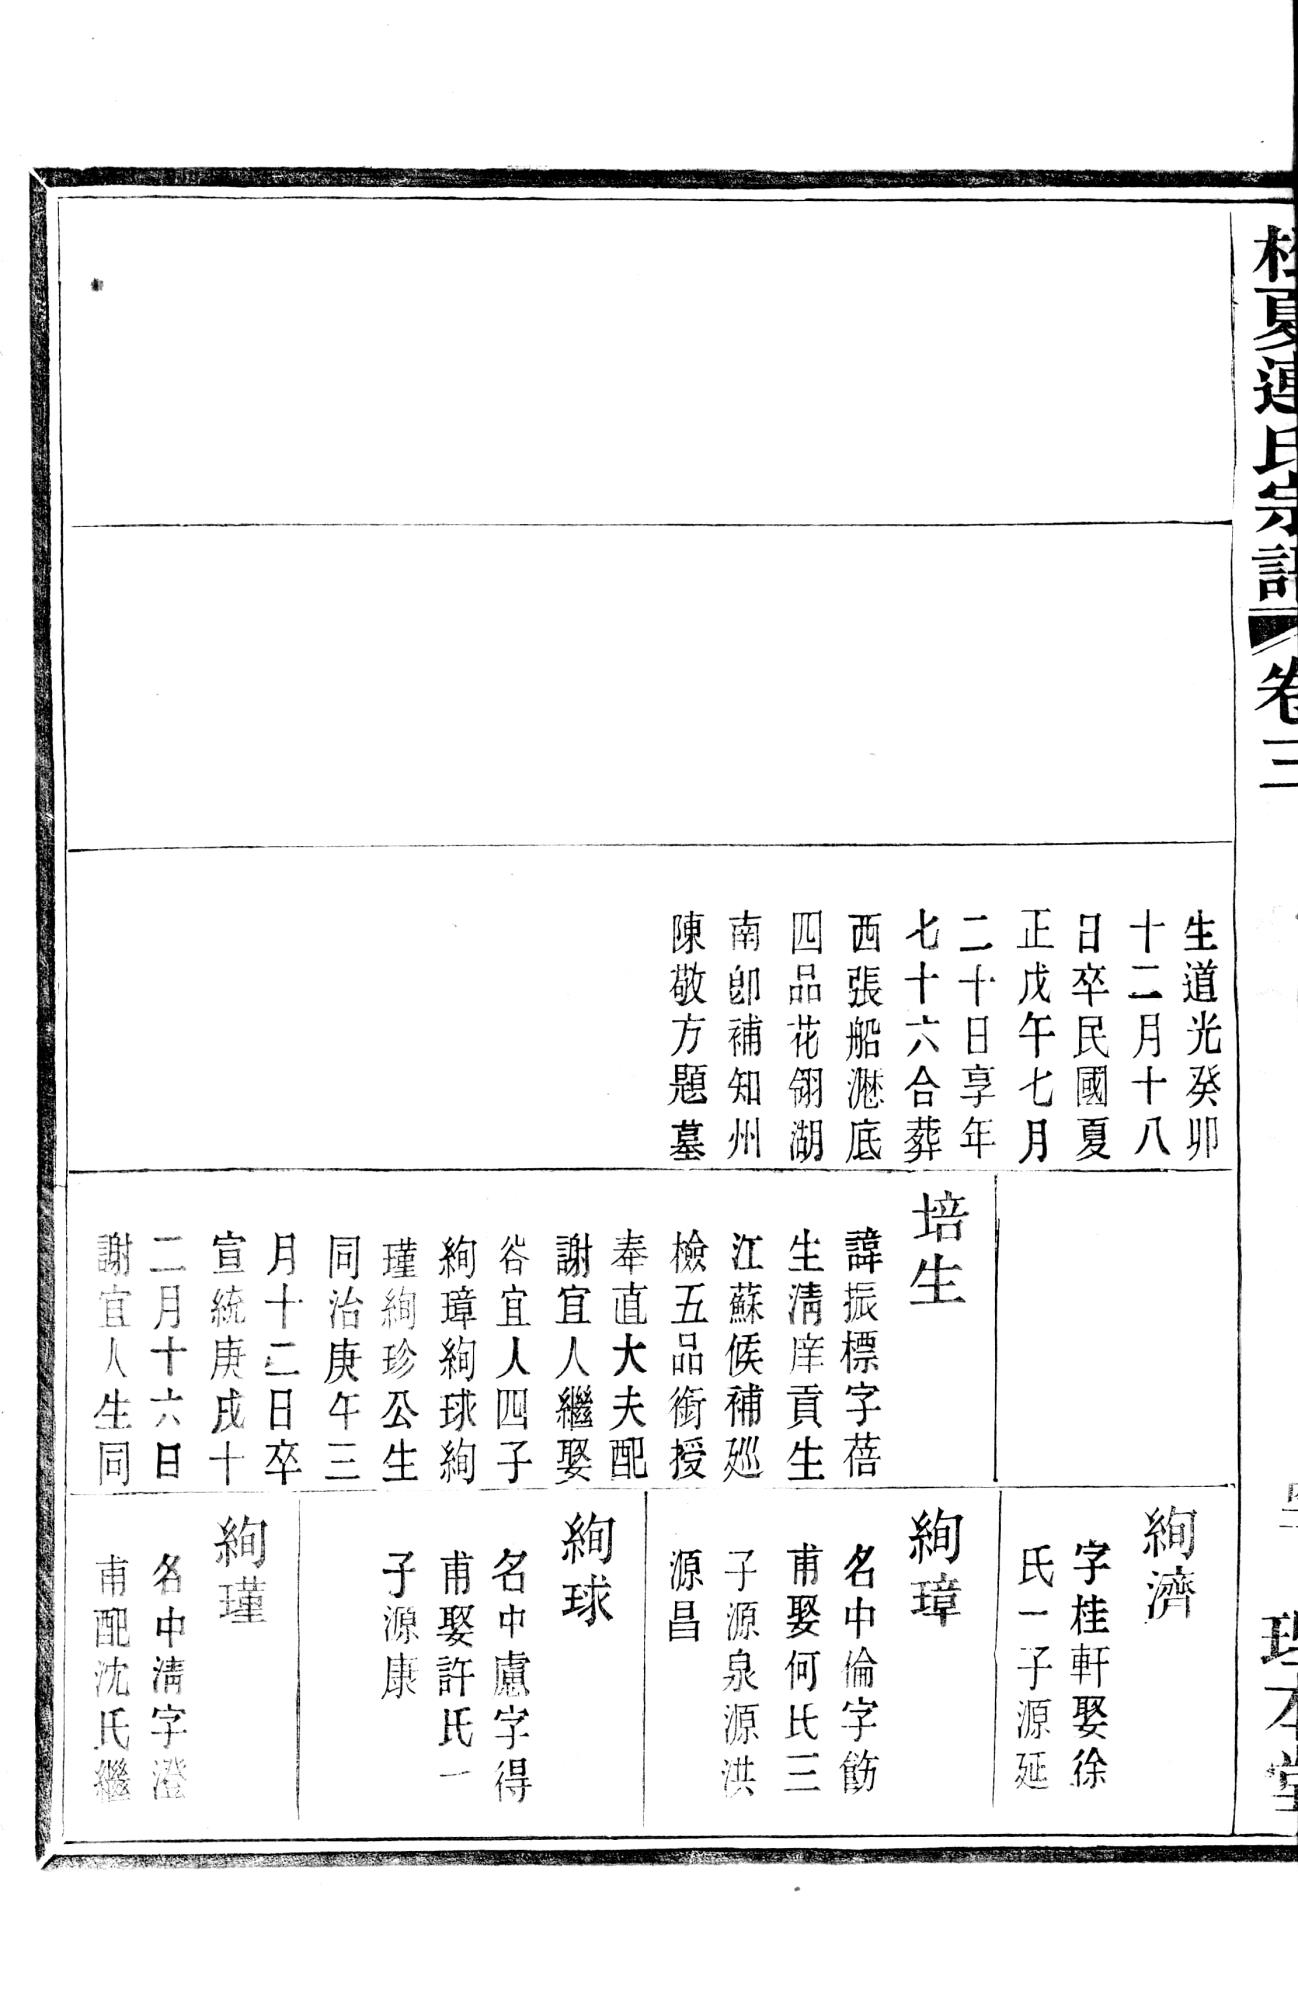 桂夏連氏宗譜 卷三
生道光癸卯
十二月十八
日卒民國夏
正戊午七月
二十日享年
七十六合葬
西張船濨底
四品花翎湖
南卽補知州
陳敬方題墓
培生
諱振標字蓓
生淸庠貢生
江蘇候補巡
檢五品銜授
奉直大夫配
謝宜人繼娶
谷宜人四子
絢璋絢球絢
瑾絢珍公生
同治庚午三
月十二日卒
宣統庚戌十
二月十六日
謝宜人生同
絢濟
字桂軒娶徐
氏一子源延
絢璋
名中倫字飭
甫娶何氏三
子源泉源洪
源昌
絢球
名中慮字得
甫娶許氏一
子源康
絢瑾
名中淸字澄
甫配沈氏繼
理本堂